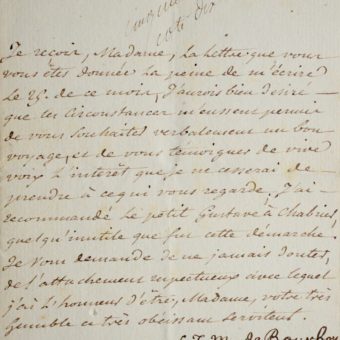 coté dix
Je reçois, Madame, la Lettre que vous
vous êtes donnée la peine de m'écrire
Le 29. de ce mois, J'aurois bien desiré
que les circonstances m'eussent permis
de vous souhaiter verbalement un bon
voyage, et de vous témoigner de vive
voix l'interêt que je ne cesserai de
prendre à ce qui vous regarde, J'ai
recommandé Le petit Gustave à Chabrier,
quelqu'inutile que fut cette démarche.
Je vous demande de ne jamais douter,
de l'attachement respectueux avec lequel
j'ai L'honneur d'être, Madame, votre très
humble et très obéissant serviteur.